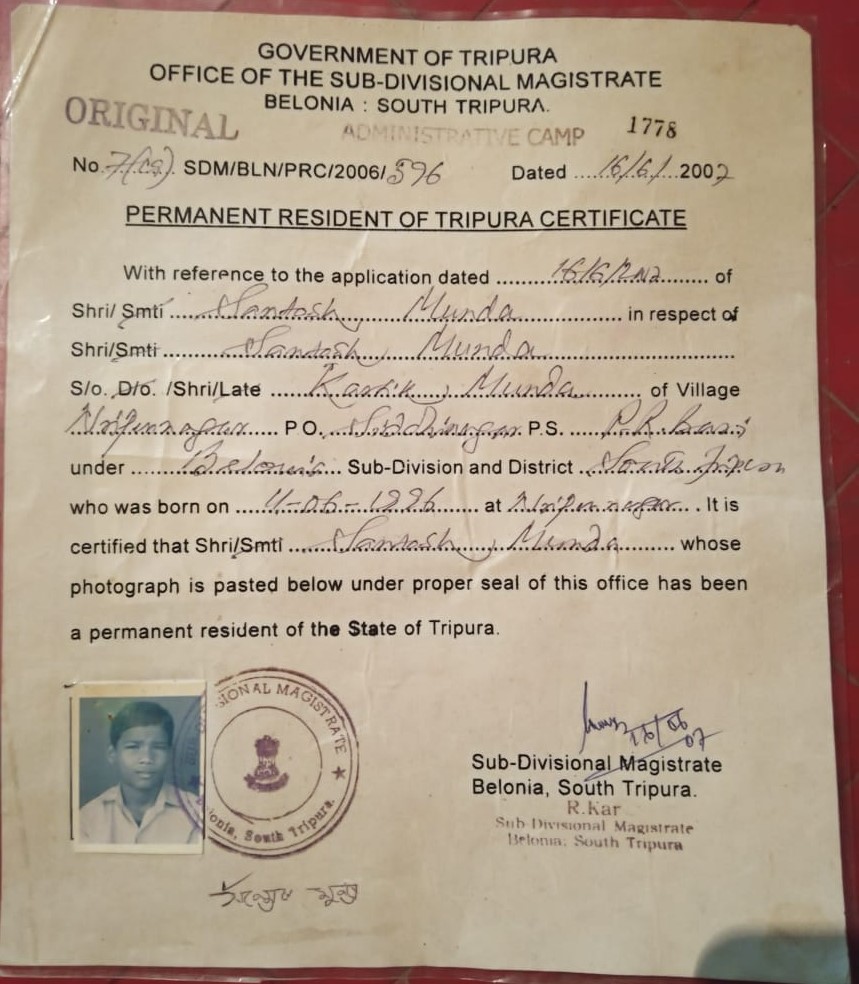 GOVERNMENT OF TRIPURA
OFFICE OF THE SUB-DIVISIONAL MAGISTRATE
BELONIA : SOUTH TRIPURA.
ORIGINAL ADMINISTRATIVE CAMP 1778
No. SDM/BLN/PRC/2006/596 Dated ....16/6/....2007
PERMANENT RESIDENT OF TRIPURA CERTIFICATE
With reference to the application dated ..........16/6/2007........ of
Shri/ Smti ....Santosh, Munda............ in respect of
Shri/Smti ..........Santosh, Munda..............................
S/o. D/o. /Shri/Late ......Kartik, Munda.......... of Village
Nripennagar..... P.O. Siddhinagar P.S. .....P.R. Bari
under .......Belonia... Sub-Division and District ..South Tripura
who was born on .....11-06-1996........ at Nripennagar.. . It is
certified that Shri/Smti ......Santosh, Munda......... whose
photograph is pasted below under proper seal of this office has been
a permanent resident of the State of Tripura.
SIONAL MAGISTRATE ★
onia, South Tripura.
16/06
07
Sub-Divisional Magistrate
Belonia, South Tripura.
R.Kar
Sub Divisional Magistrate
Belonia: South Tripura
সন্তোষ মুন্ডা